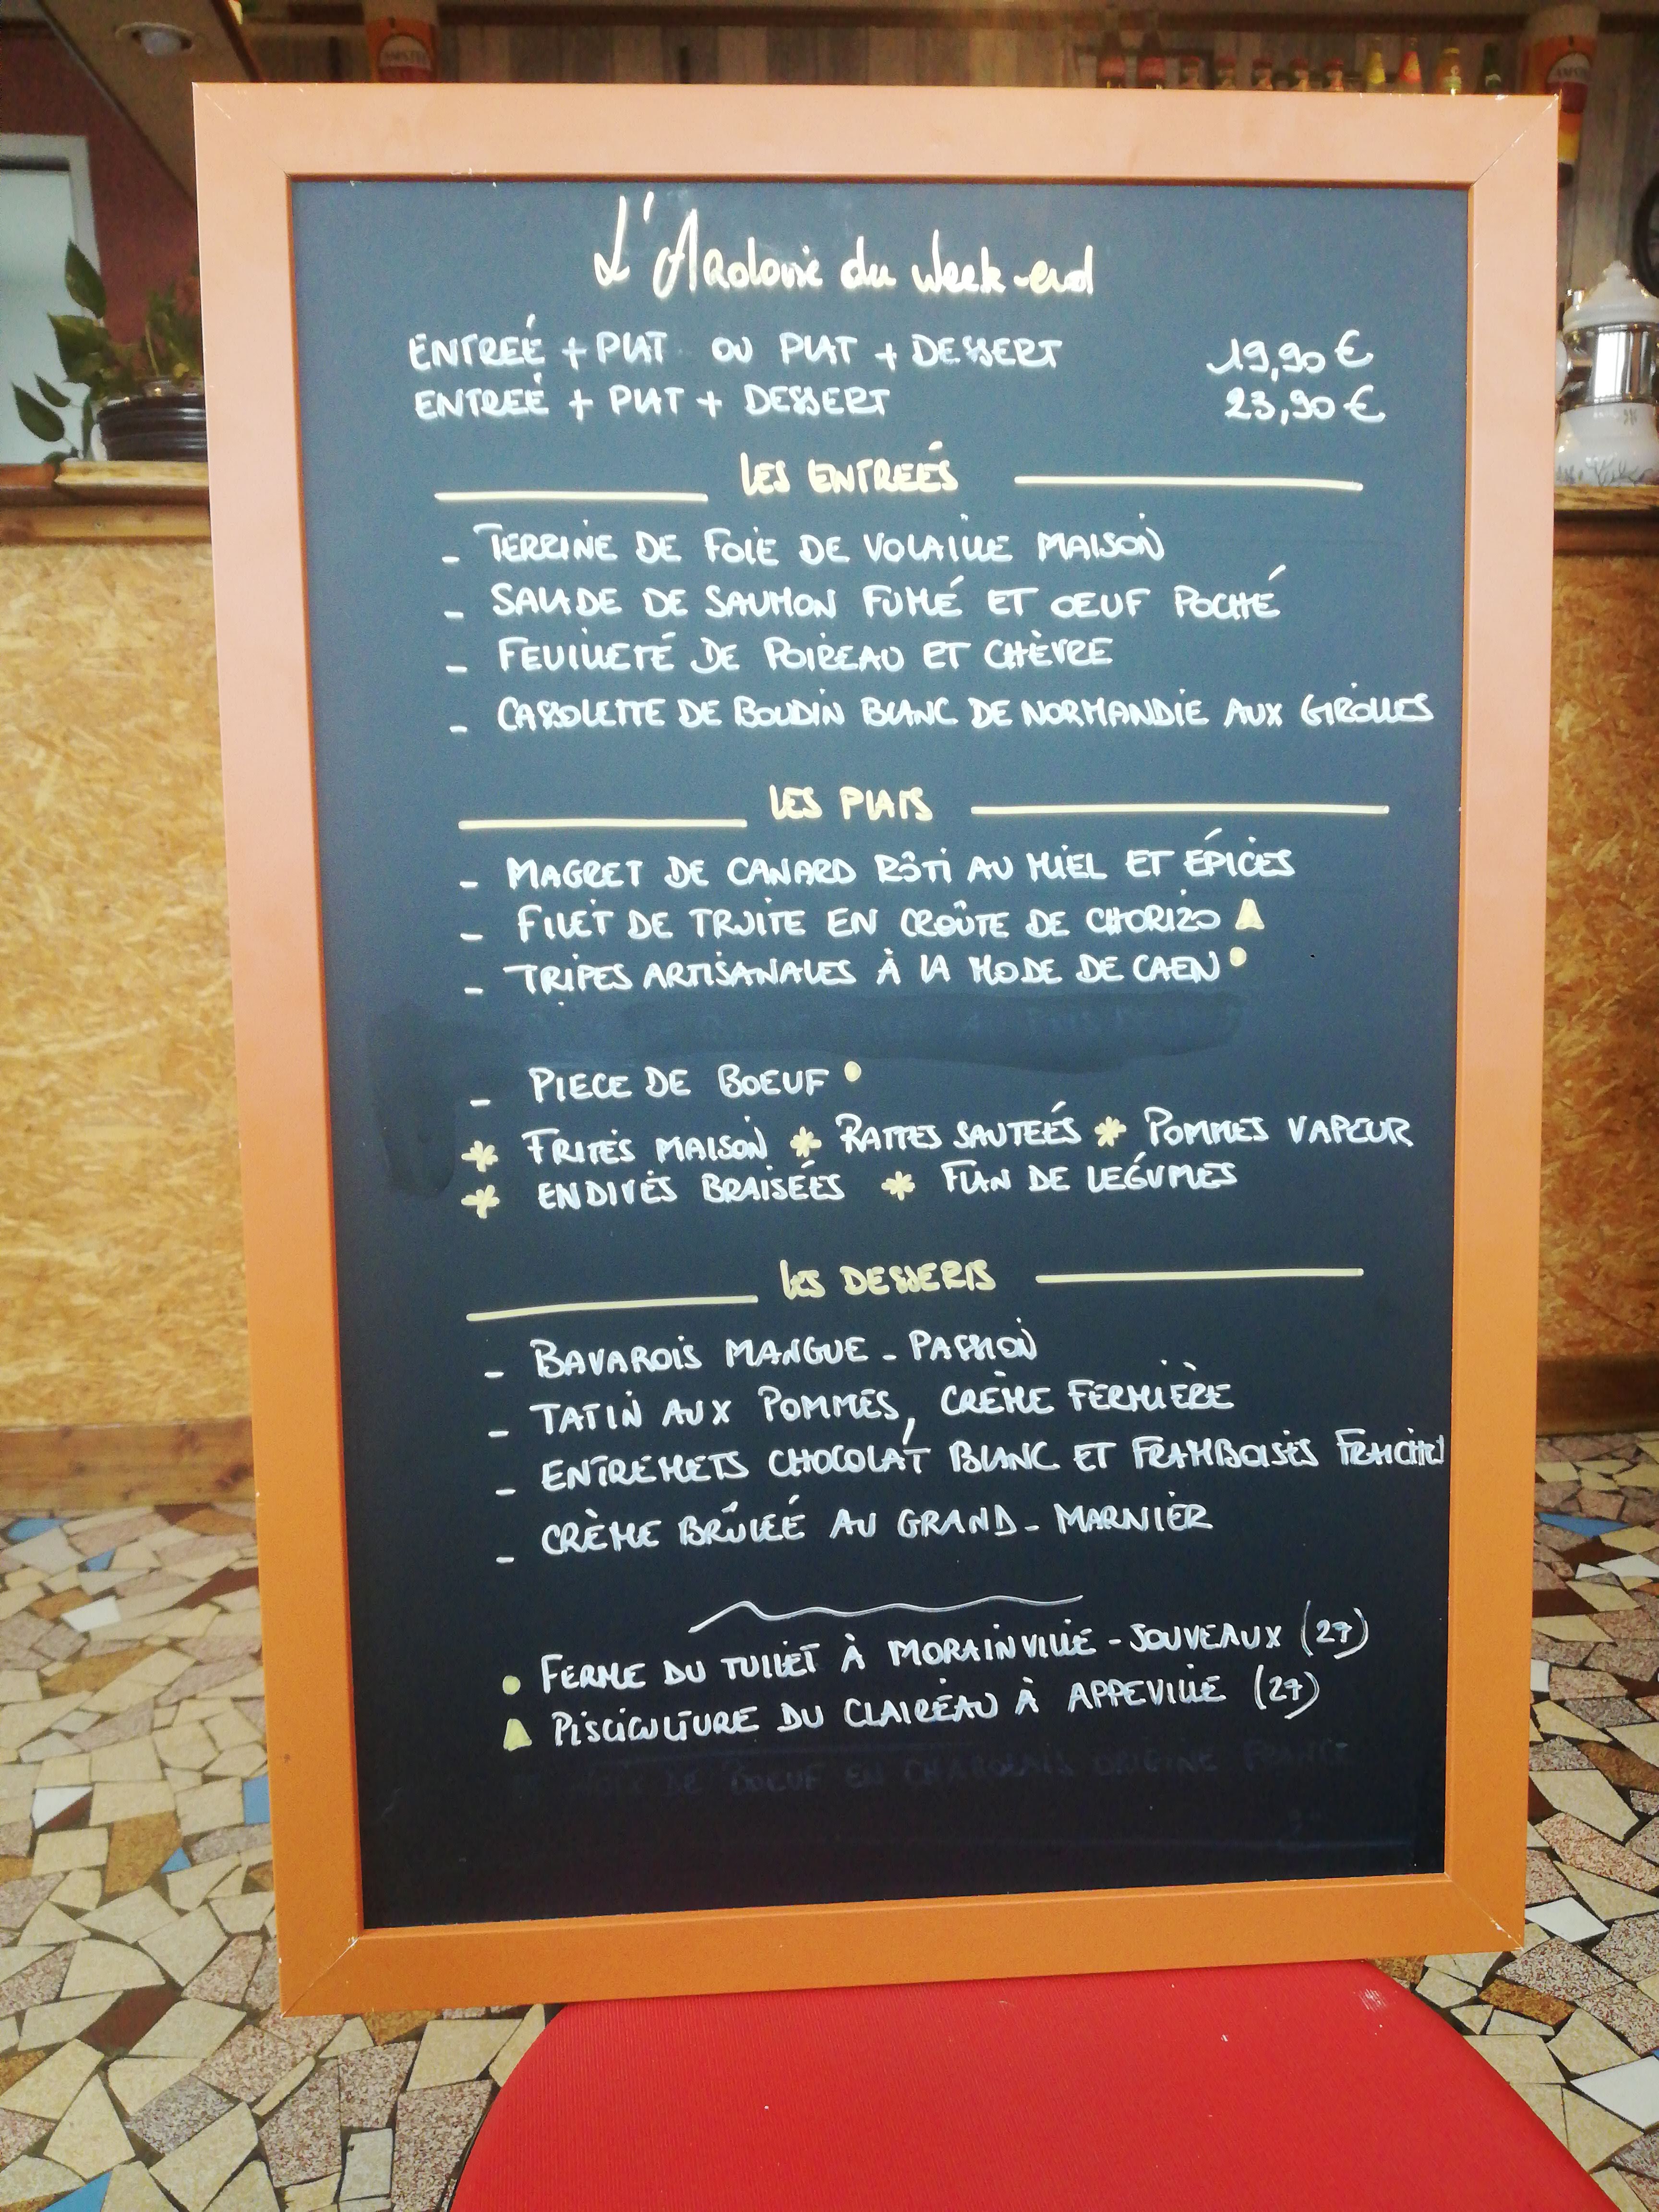 L'Ardoise du week-end
ENTREÉ + PLAT OU PLAT + DESSERT 19,90 €
ENTREÉ + PLAT + DESSERT 23,90 €
LES ENTREÉS
- TERRINE DE FOIE DE VOLAILLE MAISON
- SALADE DE SAUMON FUMÉ ET OEUF POCHÉ
- FEUILLETÉ DE POIREAU ET CHÈVRE
- CASSOLETTE DE BOUDIN BLANC DE NORMANDIE AUX GIROLLES
LES PLATS
- MAGRET DE CANARD RÔTI AU MIEL ET ÉPICES
- FILET DE TRUITE EN CROÛTE DE CHORIZO ▲
- TRIPES ARTISANALES À LA MODE DE CAEN •
- PIECE DE BOEUF •
* FRITES MAISON * RATTES SAUTEÉS * POMMES VAPEUR
* ENDIVES BRAISÉES * FLAN DE LEGÚMES
LES DESSERTS
- BAVAROIS MANGUE - PASSION
- TATIN AUX POMMES, CRÈME FERMIÈRE
- ENTREMETS CHOCOLAT BLANC ET FRAMBOISES
- CRÈME BRÛLEÉ AU GRAND-MARNIER
• FERME DU TUILET À MORAINVILLE-JOUVEAUX (27)
▲ PISCICULTURE DU CLAIREAU À APPEVILLE (27)
DE BOEUF EN CHAROLAIS ORIGINE FRANCE